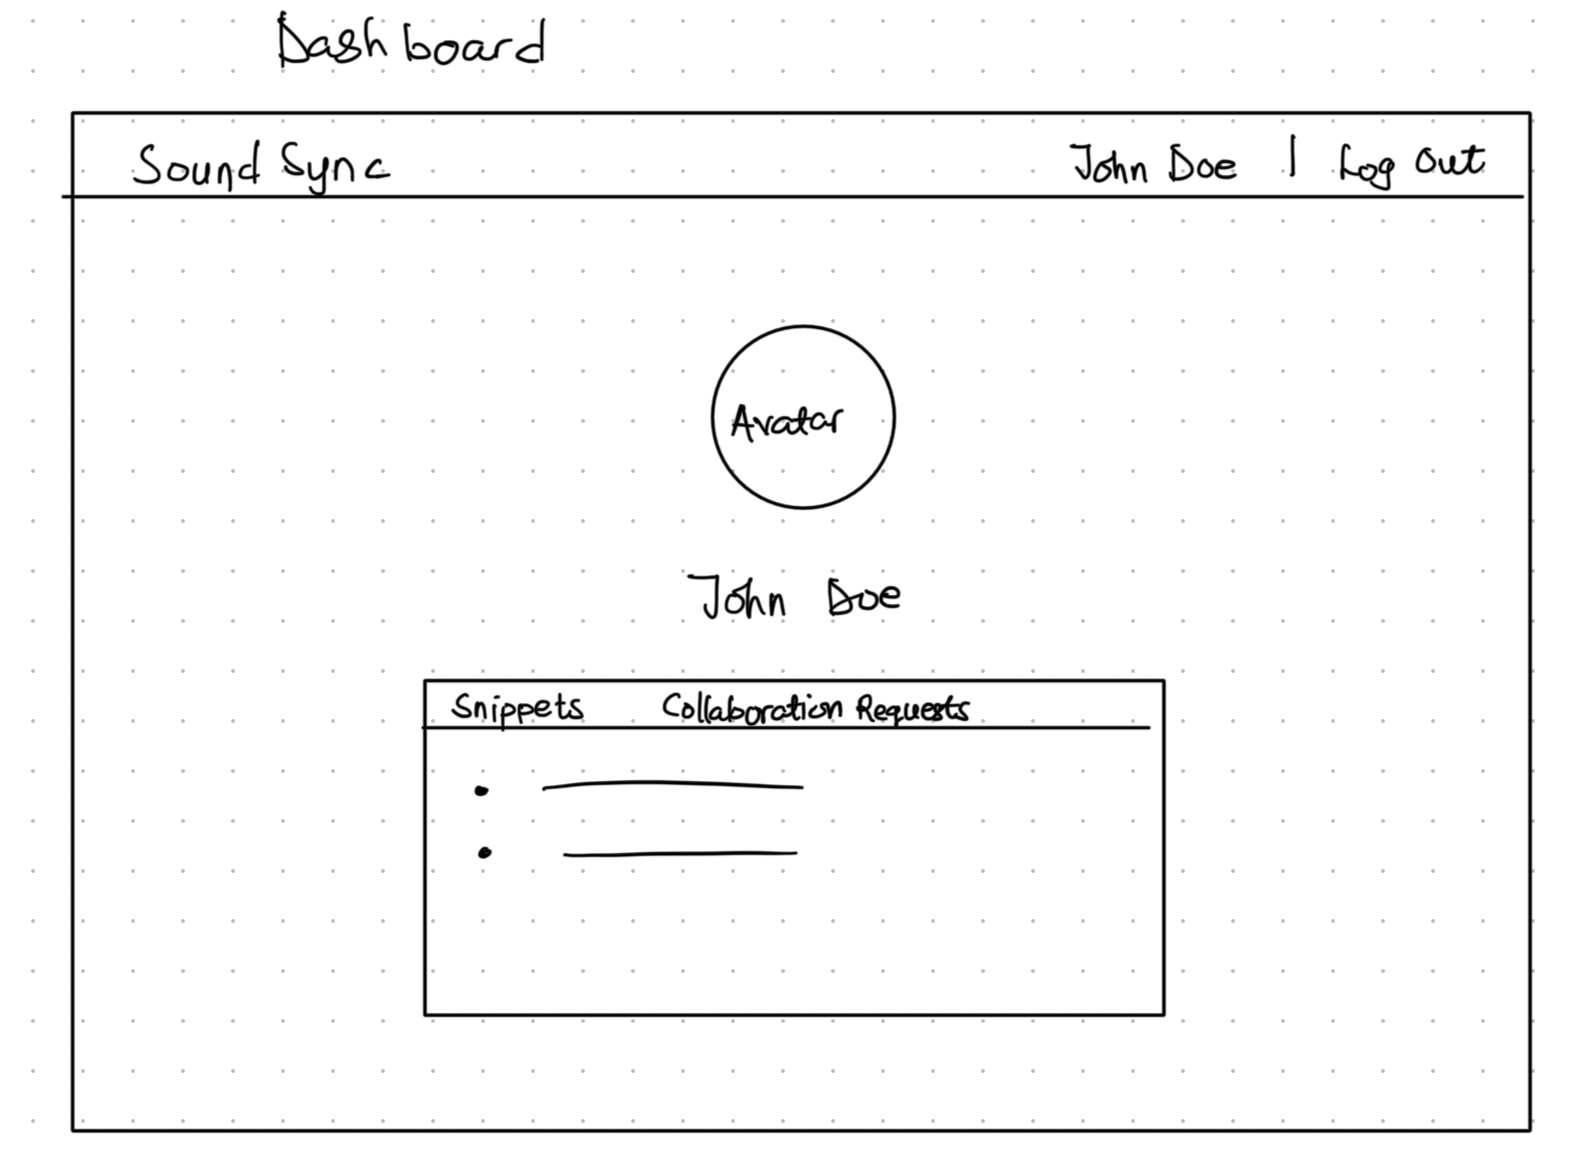 Dashboard
Sound Sync John Doe | Log Out
Avatar
John Doe
Snippets Collaboration Requests